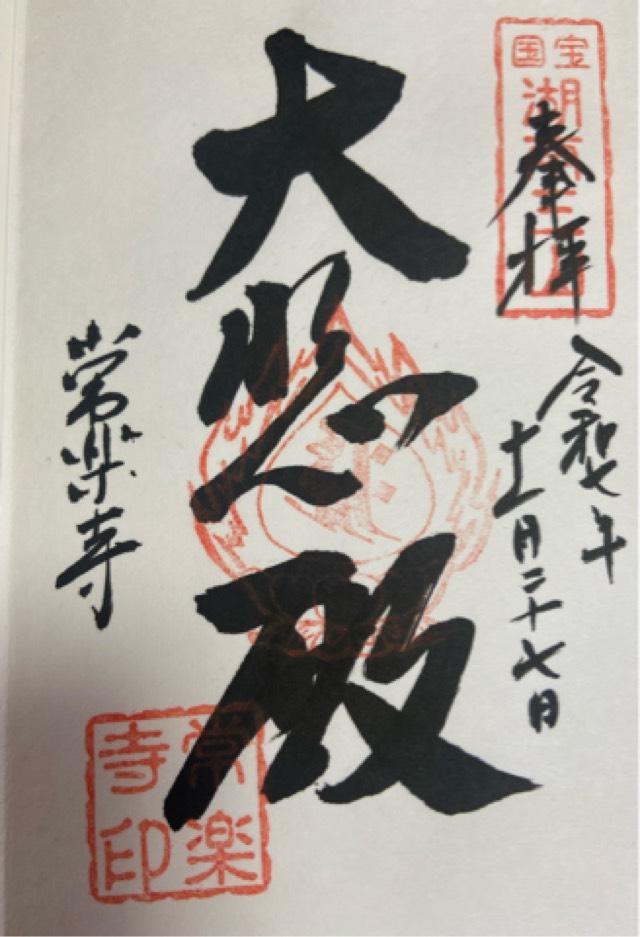 国宝
湖南三山
奉拝
令和七年
十一月二十七日
大悲殿
常楽寺
常楽
寺印